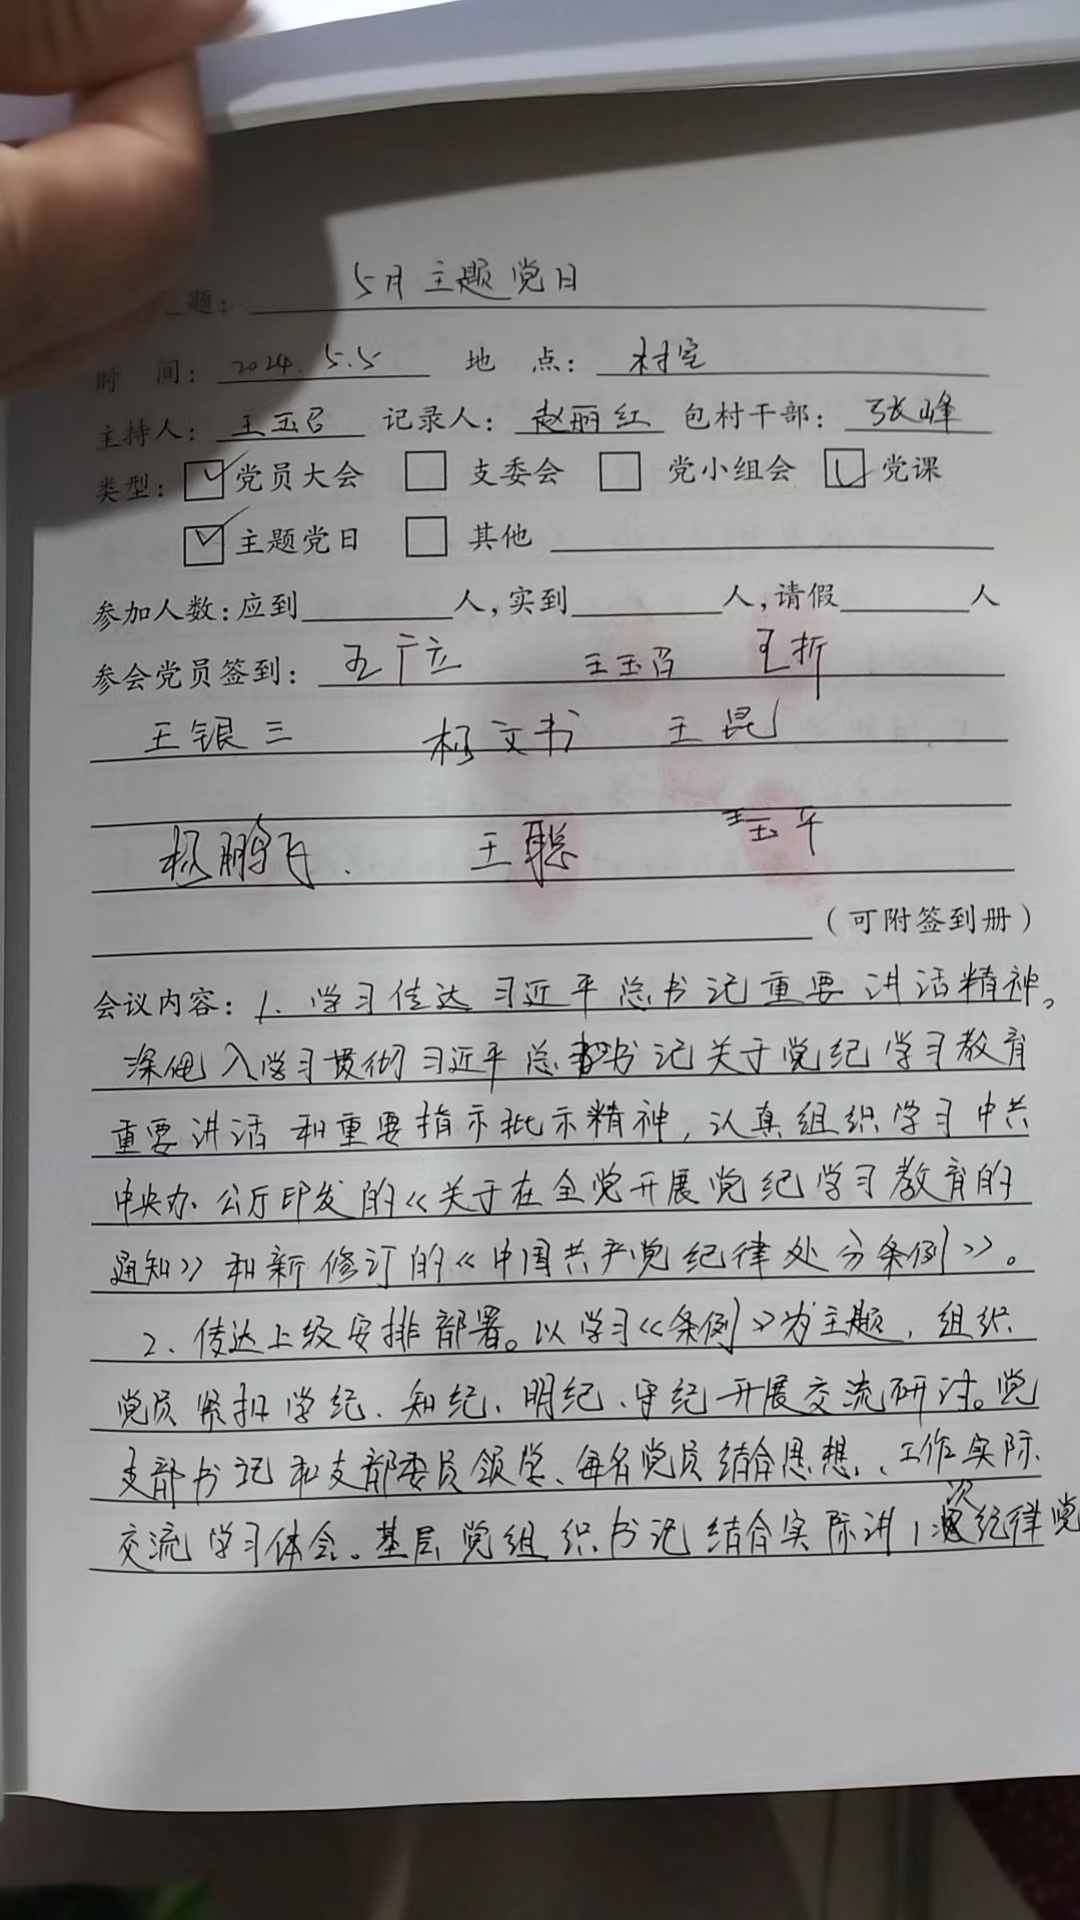 题： 5月主题党日
时 间： 2024.5.5 地 点： 村室
主持人： 王玉召 记录人： 赵丽红 包村干部： 张峰
类型： 党员大会 支委会 党小组会 党课
主题党日 其他
参加人数：应到 人，实到 人，请假 人
参会党员签到： 王广立 王玉召 王折
王银三 杨文书 王昆
杨鹏飞. 王聪 王玉平
（可附签到册）
会议内容： 1、学习传达习近平总书记重要讲话精神。
深 入学习贯彻习近平总 书记关于党纪学习教育
重要讲话和重要指示批示精神，认真组织学习中共
中央办公厅印发的《关于在全党开展党纪学习教育的
通知》和新修订的《中国共产党纪律处分条例》。
2、传达上级安排部署。以学习《条例》为主题，组织
党员紧扣学纪、知纪、明纪、守纪开展交流研讨。党
支部书记和支部委员领学、每名党员结合思想、工作实际
交流学习体会。基层党组织书记结合实际讲1次纪律党